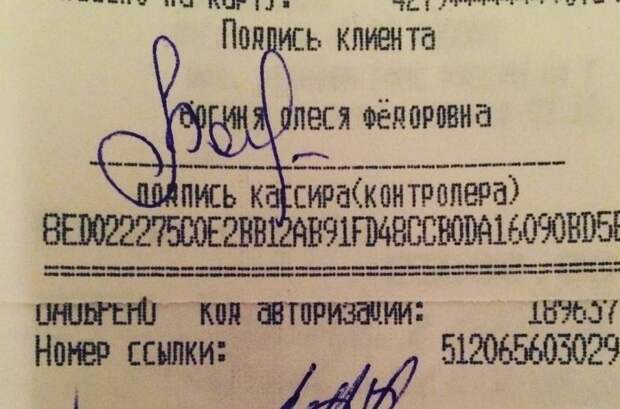 на карту:
Подпись клиента
Богиня олеся фёдоровна
подпись кассира(контролера)
8ED022275C0E2BB12AB91FD48CCB0DA16090BD5E
==============================
ОДОБРЕНО код авторизации: 189637
Номер ссылки: 512065603029